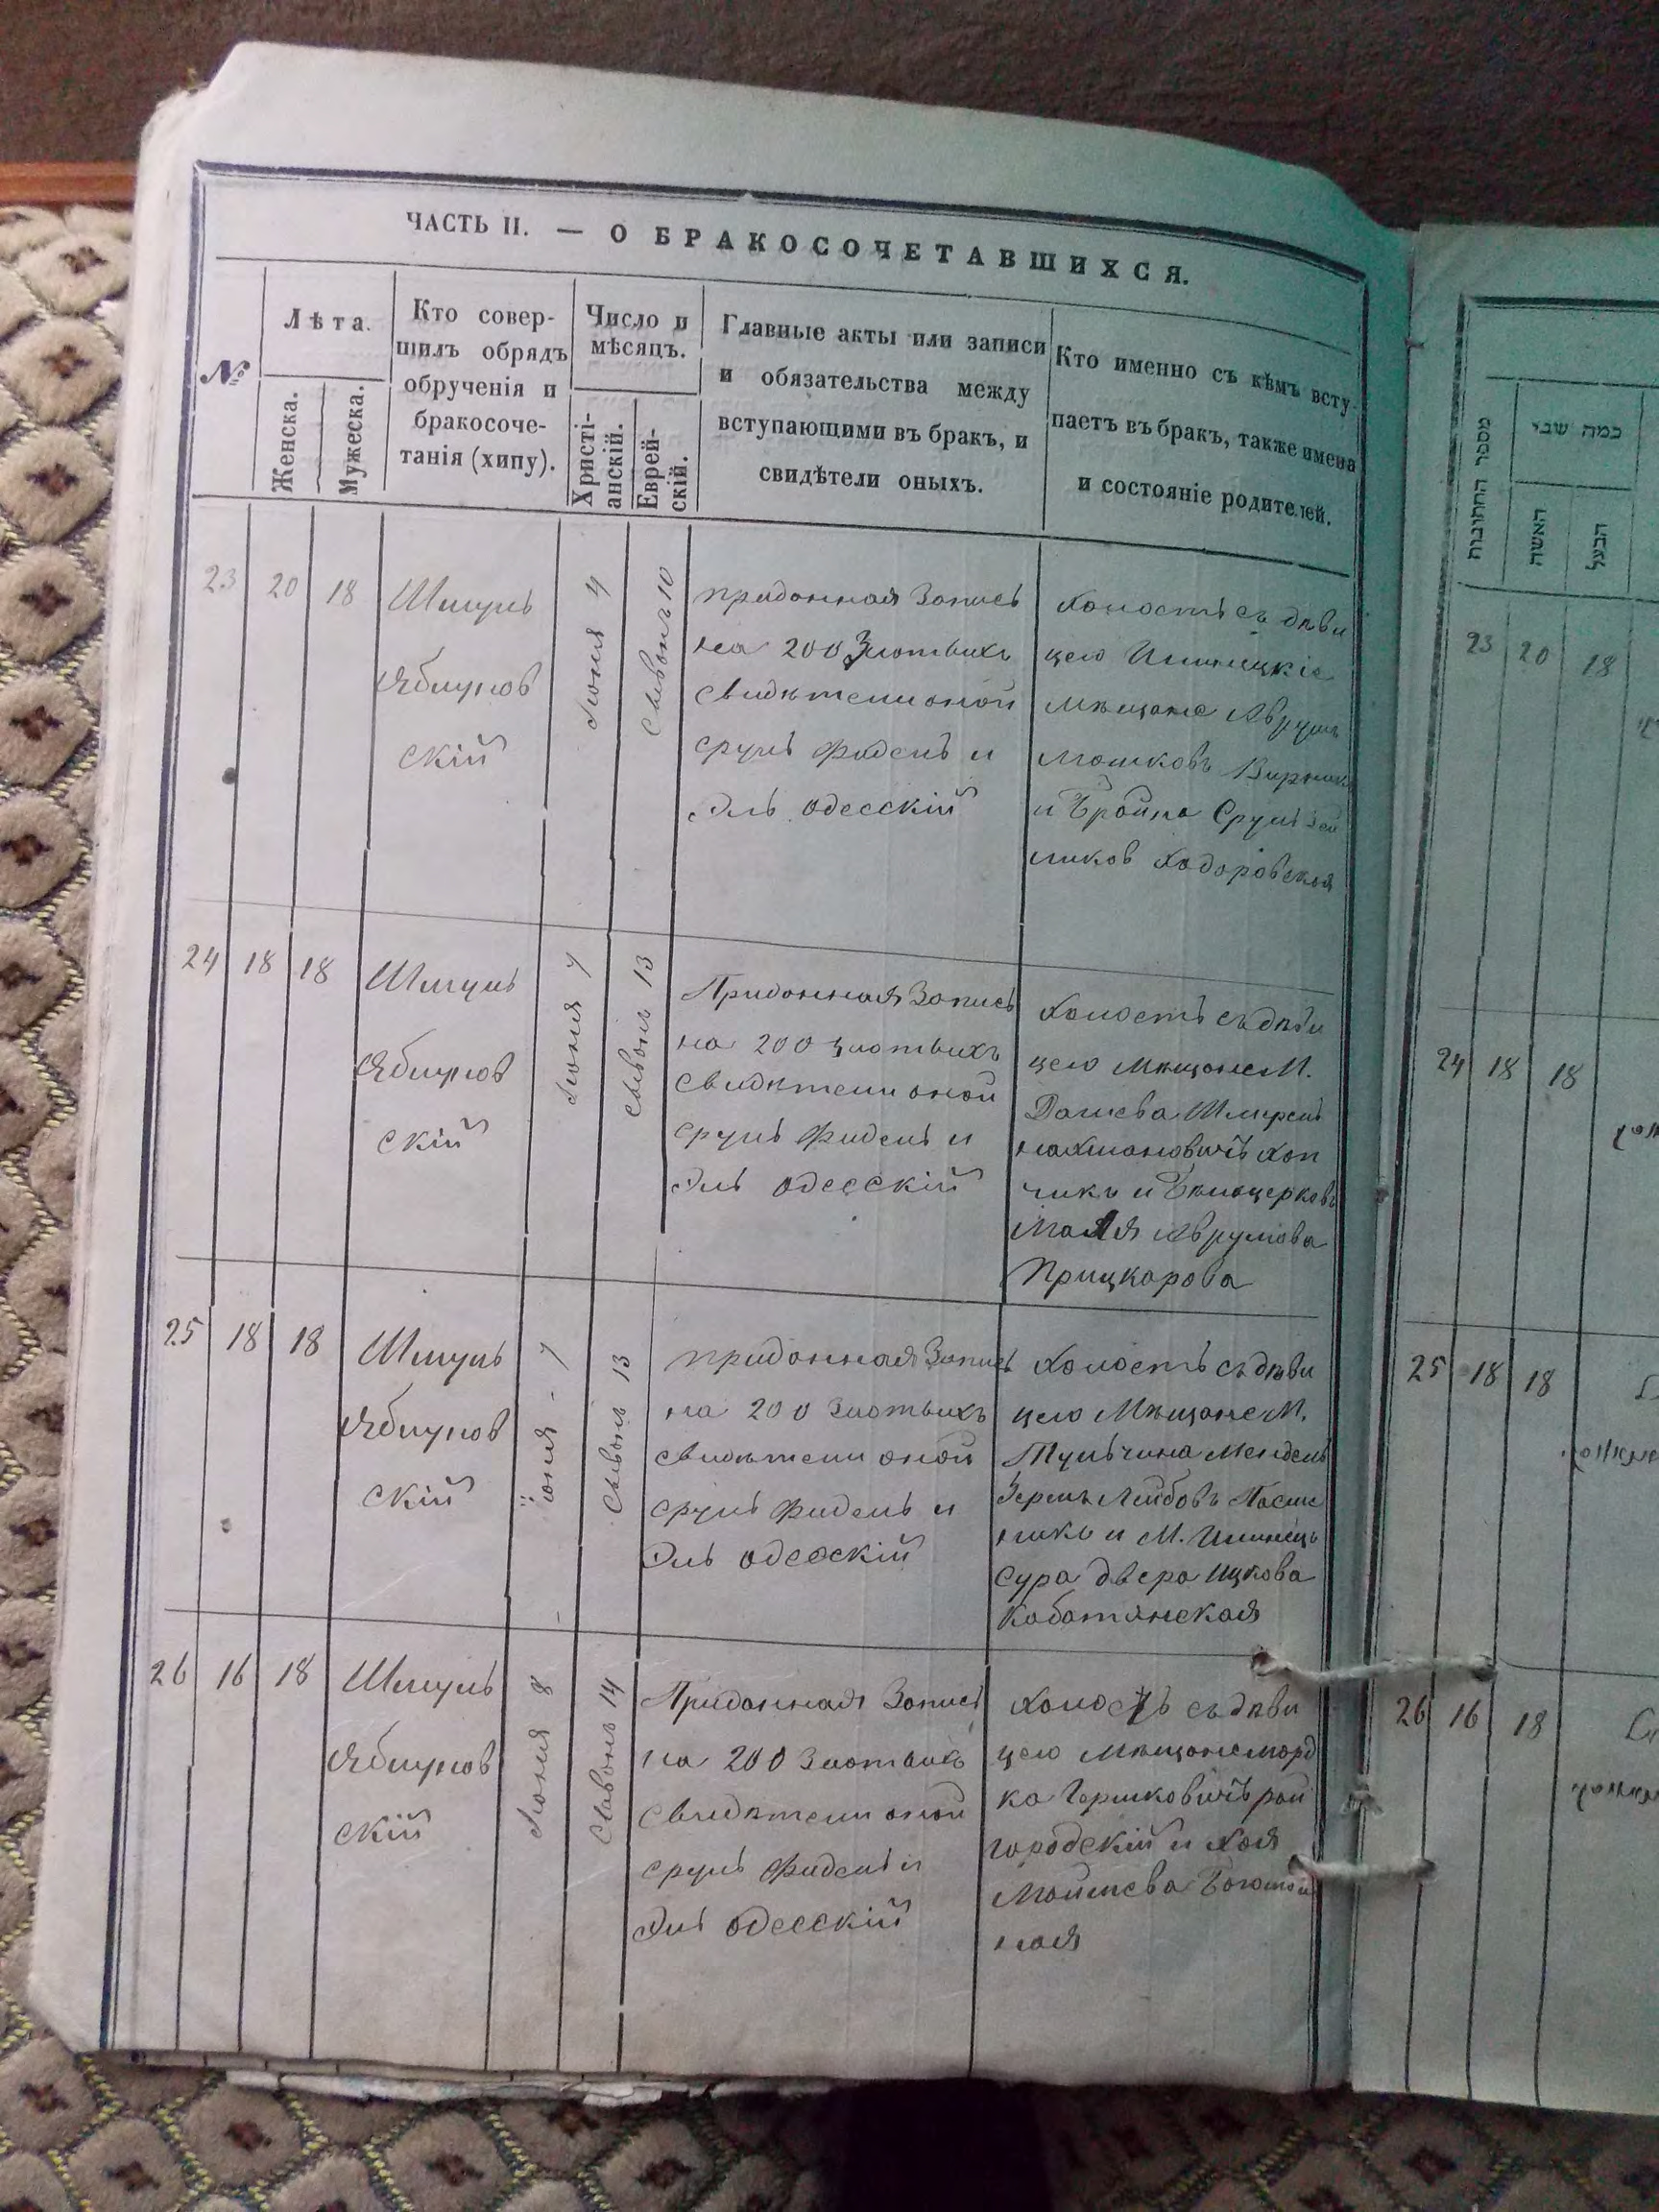 ЧАСТЬ II. — О БРАКОСОЧЕТАВШИХСЯ.
№
Лѣта.
Женска.
Мужеска.
Кто совер-
шилъ обрядъ
обрученія и
бракосоче-
танія (хипу).
Число и
мѣсяцъ.
Христі-
анскій.
Еврей-
скій.
Главные акты или записи
и обязательства между
вступающими въ бракъ, и
свидѣтели оныхъ.
Кто именно съ кѣмъ всту-
паетъ въ бракъ, также имена
и состояніе родителей.
23
20
18
Шмуль
Яблунов
скій
Июня 4
Сывонъ 10
придонная Запись
на 200 Злотыхъ
свидѣтели оной
сруль Фидель и
Эль одесскій
холостъ съ дѣви
цею Илинецкіе
мѣщане Аврумъ
Мошковъ
и Бройна Сруль Зей
ликов Ходоровская
24
18
18
Шмуль
Яблунов
скій
Июня 7
Сывонъ 13
Придонная Запись
на 200 злотыхъ
свидѣтели оной
сруль Фидель и
Эль одесскій
холостъ съ дѣви
цею мѣщане М.
Дашева Шмерель
нахмановичъ
чикъ и Бѣлоцерковъ
Малья Аврумова
Прицкарова
25
18
18
Шмуль
Яблунов
скій
июня - 7
Сывонъ 13
придонная Запись
на 200 Злотыхъ
свидѣтели оной
сруль Фидель и
Эль одесскій
холостъ съ дѣви
цею Мѣщане М.
Тульчина Мендель
Берко Лейбовъ Пасич
никъ и М. Илинецъ
Сура двера Ицкова
Кобатянская
26
16
18
Шмуль
Яблунов
скій
Июня 8
Сывонъ 14
Придонная Запись
на 200 Злотыхъ
свидѣтели оной
сруль Фидель и
Эль одесскій
холостъ съ дѣви
цею мѣщане морд
ко Гершковичъ рай
городскій и Хая
Моишева
ная
מספר החתונות
כמה שני
האשה
הבעל
23
20
18
24
18
18
25
18
18
26
16
18